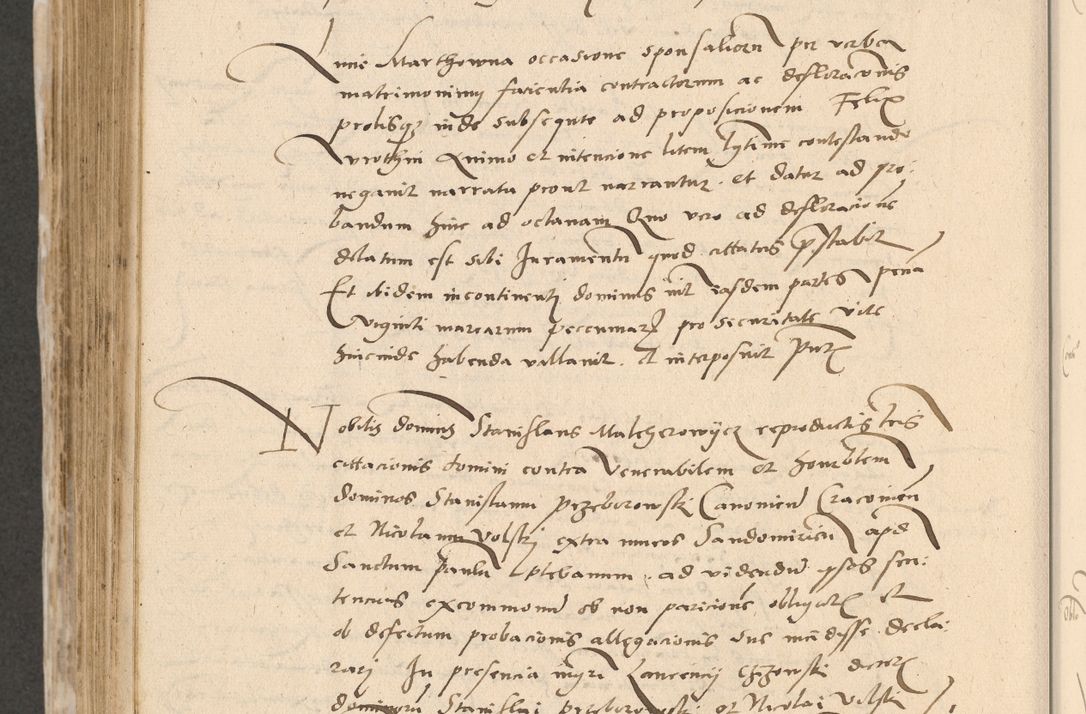 Anne Marthowna occasione sponsaliorum per verba
matrimonimy facientia contractorum ac defloracionis
prolisque inde subsequte ad proposicionem Felix
animo et intencione litem contestando
negavit narrata prout narrantur et datur ad pro
bandum hinc ad octavam Quo vero ad defloracione
delatum est sibi Juramentu quod cittatus prestabit
Et ibidem incontinenti dominus inter easdem partes pena
viginti marcarum peccuniar pro securitate vite
hincinde habenda vallavit et interposuit
Nobilis dominus Stanislaus Malcherowycz reproductis lris
cittacionis domini contra Venerabilem et honorabilem
dominos Stanislaum Przeborowski Canonicum Cracovien
et Nicolaum Volski extra muros Sandomirien apud
Sanctum Paulu plebanum ad videndum ipsos sen
tencias excommoni ob non paricione et
ob defectum probacionis allegacionis sue incidisse decla
rari In presencia
dominorum Stanislai Przeborowski et Nicolai Volski